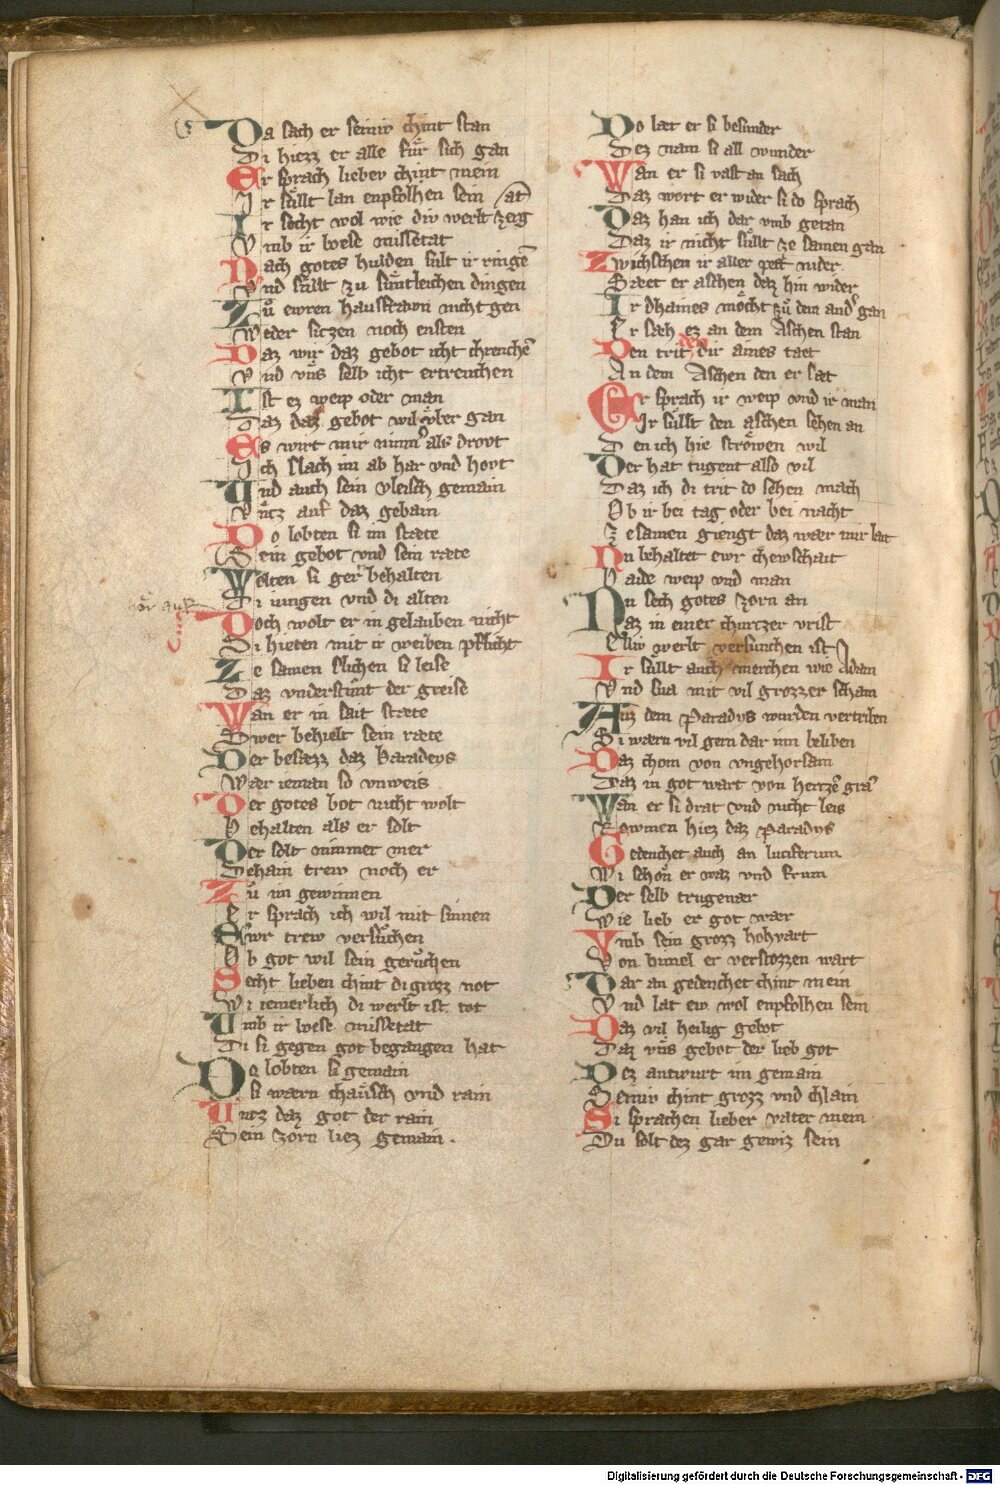 Da sach er seinev chint stan
Di hiezz er alle fuͤr sich gan
Er sprach lieben chint mein
Ir suͤllt lan enpfolhen sein
Ir secht wol wie div werlt zerg /at
Vmb ir boese missetat
Nach gotes hulden sult ir ringē
Vnd suͤllt zu suͤntleichen dingen
Zuͦ ewren hausfrawn nicht gen
Weder sitzen noch ensten
Daz wir daz gebot icht chrenchē
Vnd vns selb icht ertrenchen
Ist ez weip oder man
Daz daz gebot wil vͤber gan
Es wirt mir nimmer als drovt
Ich slach im ab har vnd hovt
Vnd auch sein vleisch gemain
Vntz auf daz gebain
Do lobten si im staete
Sein gebot vnd sein raete
Wolten si ger behalten
Di iungen vnd di alten
Doch wolt er in gelauben nicht
Si hieten mit ir weiben pflicht
Ze samen slichen si leise
Daz vnderstuͤnt der greise
Wan er in sait staete
Swer behielt sein raete
Der besaezz daz Paradeys
Waer ieman so vnweis
Der gotes bot nicht wolt
Behalten als er solt
Der solt nimmer mer
Dehain trew noch er
Zuͦ im gewinnen
Er sprach ich wil mit sinnen
Ewr trew versuͦchen
Ob got wil sein geruͦchen
Secht lieben chint di grozz not
Wi iemerlich di werlt ist tot
Vmb ir boese missetat
Di si gegen got begangen hat
Do lobten si gemain
Si waern chaͤusch vnd rain
Vntz daz got der rain
Sein zorn liez gemain .
Do laet er si besunder
Dez nam si all wunder
Wan er si vast an sach
Daz wort er wider si do sprach
Daz han ich dar vmb getan
Daz ir nicht suͤllt ze samen gan
Zwichschen ir aller pett nider
Saeet er aschen daz hin wider
Ir dhaines moͤcht zuͦ dem andˀn gan
Er saeh ez an dem Aschen stan
Den trit den dir aines taet
An dem Aschen den er saet
Er sprach ir weip vnd ir man
Ir suͤllt den aschen sehen an
Den ich hie stroͤwen wil
Der hat tugent also vil
Daz ich di trit do sehen mach
Ob ir bei tag oder bei nacht
Ze samen giengt daz waer mir lait
Nu behaltet ewr chewschait
Paide weip vnd man
Nu sech gotes zorn an
Daz in einer churtzer vrist
Elliv werlt versunchen ist
Ir suͤllt auch merchen wie Adam
Vnd Eua mit vil grozzer scham
Auz dem Paradys wurden vertriben
Si waern vil gern dar inn beliben
Daz chom von vngehorsam
Daz in got wart von hertzē gram
Wan er si drat vnd nicht leis
Rowmen hiez daz Paradys
Gedenchet auch an luciferum
Wi schoͤn er waz vnd frum
Der selb trugenaer
Wie lieb er got waer
Vmb sein grozz hohvart
Von himel er verstozzen wart
Dar an gedenchet chint mein
Vnd lat ew wol enpfolhen sein
Daz vil heilig gebot
Daz vns gebot der lieb got
Dez antwurt im gemain
Seinev chint grozz vnd chlain
Si sprachen lieber vater mein
Du solt dez gar gewiz sein
Digitalisierung gefördert durch die Deutsche Forschungsgemeinschaft - DFG